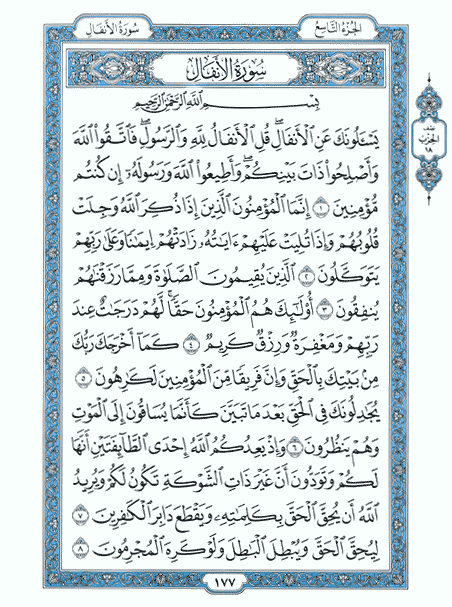 سُورَةُ الأَنفَالِ
الجُزْءُ التَّاسِعُ
سُورَةُ الأَنفَالِ
بِسْمِ ٱللَّهِ ٱلرَّحْمَٰنِ ٱلرَّحِيمِ
يَسْـَٔلُونَكَ عَنِ ٱلْأَنفَالِۖ قُلِ ٱلْأَنفَالُ لِلَّهِ وَٱلرَّسُولِۖ فَٱتَّقُوا۟ ٱللَّهَ
وَأَصْلِحُوا۟ ذَاتَ بَيْنِكُمْۖ وَأَطِيعُوا۟ ٱللَّهَ وَرَسُولَهُۥٓ إِن كُنتُم
مُّؤْمِنِينَ ١ إِنَّمَا ٱلْمُؤْمِنُونَ ٱلَّذِينَ إِذَا ذُكِرَ ٱللَّهُ وَجِلَتْ
قُلُوبُهُمْ وَإِذَا تُلِيَتْ عَلَيْهِمْ ءَايَٰتُهُۥ زَادَتْهُمْ إِيمَٰنًا وَعَلَىٰ رَبِّهِمْ
يَتَوَكَّلُونَ ٢ ٱلَّذِينَ يُقِيمُونَ ٱلصَّلَوٰةَ وَمِمَّا رَزَقْنَٰهُمْ
يُنفِقُونَ ٣ أُو۟لَٰٓئِكَ هُمُ ٱلْمُؤْمِنُونَ حَقًّاۚ لَّهُمْ دَرَجَٰتٌ عِندَ
رَبِّهِمْ وَمَغْفِرَةٌ وَرِزْقٌ كَرِيمٌ ٤ كَمَآ أَخْرَجَكَ رَبُّكَ
مِنۢ بَيْتِكَ بِٱلْحَقِّ وَإِنَّ فَرِيقًا مِّنَ ٱلْمُؤْمِنِينَ لَكَٰرِهُونَ ٥
يُجَٰدِلُونَكَ فِى ٱلْحَقِّ بَعْدَ مَا تَبَيَّنَ كَأَنَّمَا يُسَاقُونَ إِلَى ٱلْمَوْتِ
وَهُمْ يَنظُرُونَ ٦ وَإِذْ يَعِدُكُمُ ٱللَّهُ إِحْدَى ٱلطَّآئِفَتَيْنِ أَنَّهَا
لَكُمْ وَتَوَدُّونَ أَنَّ غَيْرَ ذَاتِ ٱلشَّوْكَةِ تَكُونُ لَكُمْ وَيُرِيدُ
ٱللَّهُ أَن يُحِقَّ ٱلْحَقَّ بِكَلِمَٰتِهِۦ وَيَقْطَعَ دَابِرَ ٱلْكَٰفِرِينَ ٧
لِيُحِقَّ ٱلْحَقَّ وَيُبْطِلَ ٱلْبَٰطِلَ وَلَوْ كَرِهَ ٱلْمُجْرِمُونَ ٨
١٧٧
نصف
الحزب
١٨